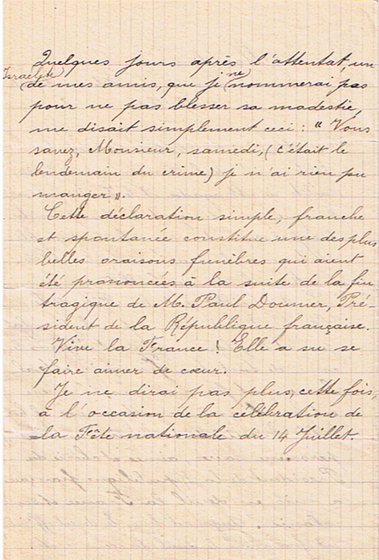 Quelques jours après l'attentat, un
Israelite
de mes amis, que je ne nommerai pas
pour ne pas blesser sa modestie,
me disait simplement ceci : "Vous
savez, Monsieur, samedi, (c'était le
lendemain du crime) je n'ai rien pu
manger".
Cette déclaration simple, franche
et spontanée constitue une des plus
belles oraisons funèbres qui aient
été prononcées à la suite de la fin
tragique de M. Paul Doumer, Pré-
sident de la République française.
Vive la France ! Elle a su se
faire aimer de cœur.
Je ne dirai pas plus, cette fois,
à l'occasion de la célébration de
la Fête nationale du 14 Juillet.